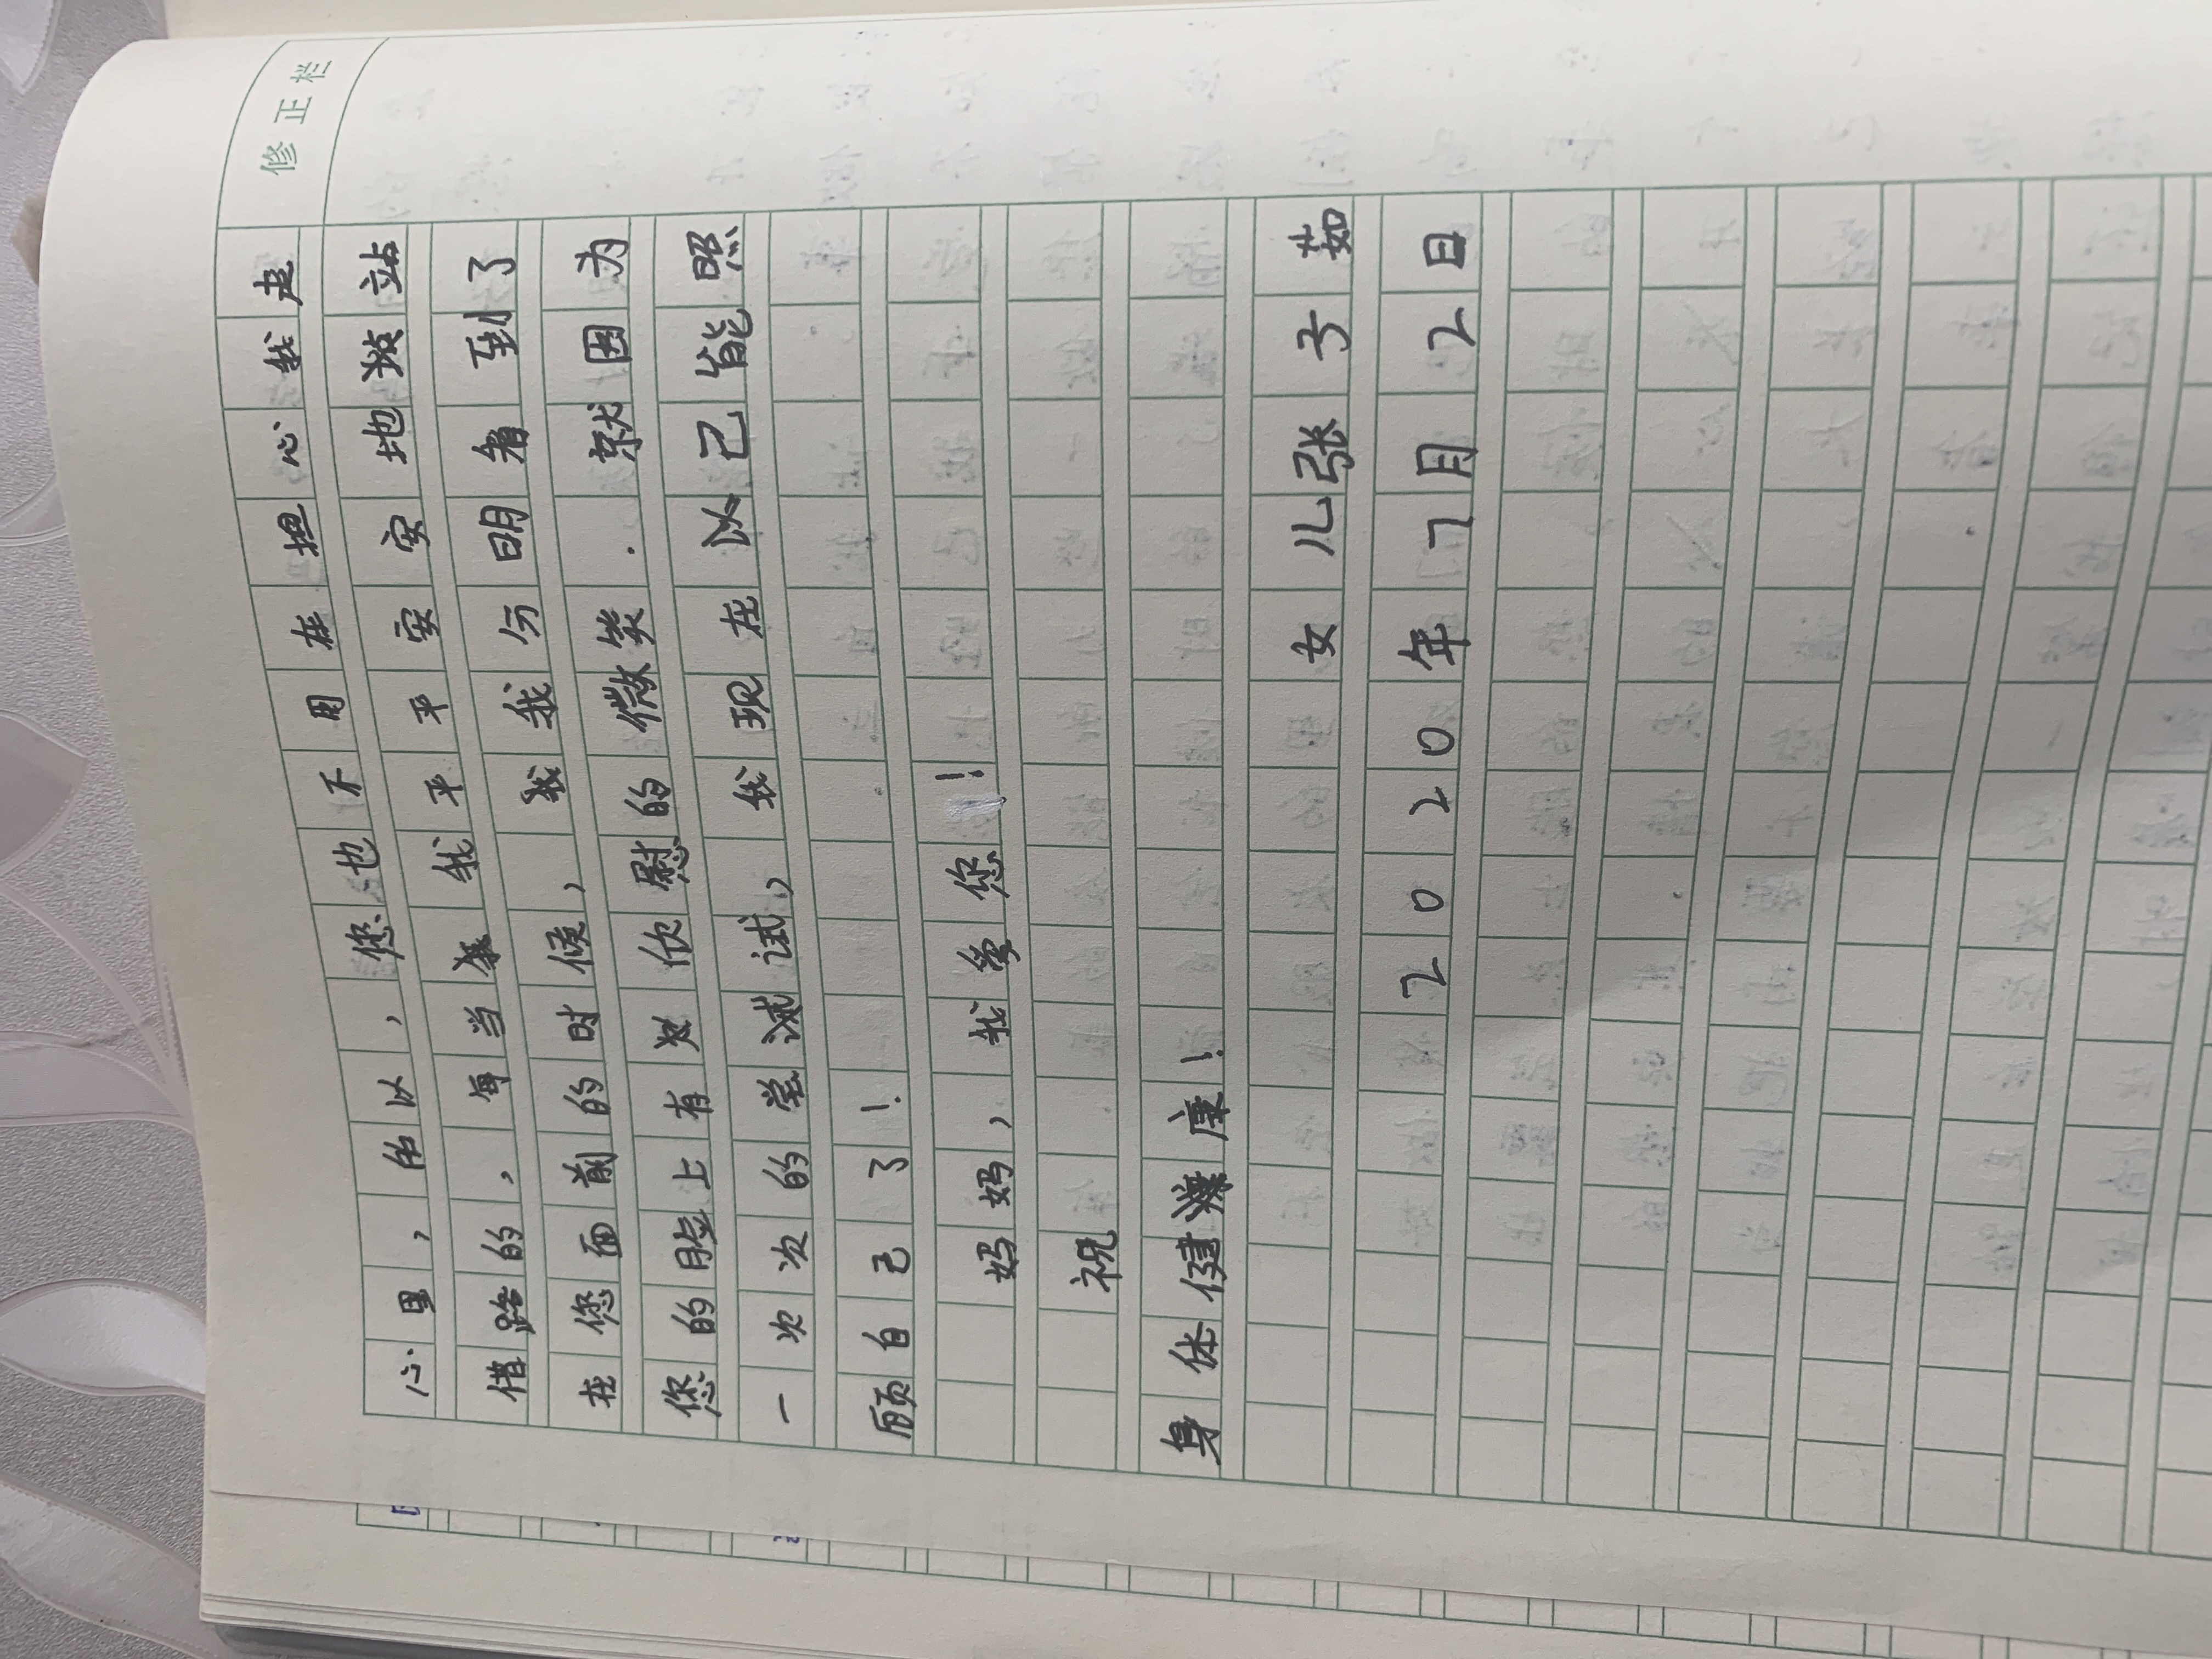 修正栏
心里，所以，您也不用在担心我赶
借路的，每当我平平安安地站
在您面前的时候，我分明看到了
您的脸上有欣慰的微笑．就因为
一次次的尝试，我现在以己能照
顾自己了！
妈妈，我爱您！
祝
身体健康！
女儿张子茹
2020年7月2日